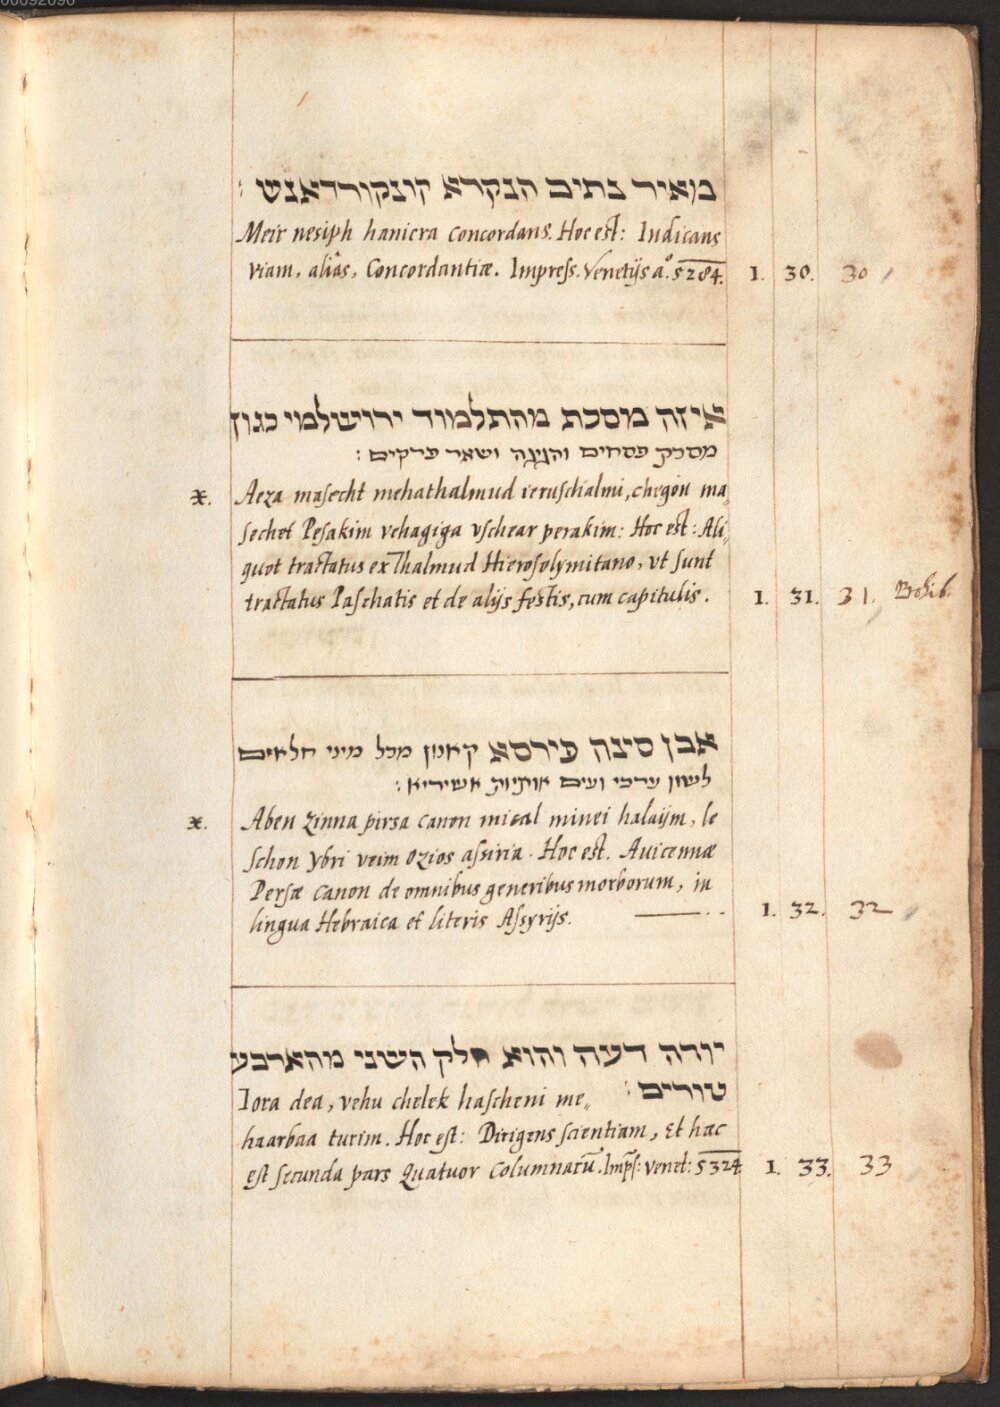 מאיר נתיב הנקרא קונקורדאנש :
Meir nesiph hanicra concordans. Hoc est: Indicans
viam, aliâs, Concordantiæ. Impress. Venetijs aº. 5284. 1. 30. 30
איזה מוסכת מהתלמוד ירושלמי כגון
מסכת פסחים והגיגה ושאר פרקים :
x. Aeza masecht mehathalmud ieruschalmi, chegon ma„
sechet Pesakim vehagiga vschear perakim: Hoc est: Ali„
quot tractatus ex Thalmud Hierosolymitano, vt sunt
tractatus Paschatis et de alijs festis, cum capitulis. 1. 31. 31.
אבן סינה פירסא קאנון מכל מיני חלאים
לשון ערבי ועים אותיות אשיריא :
x. Aben zinna pirsa canon mical minei halaijm, le
schon ybri veim ozios assiria. Hoc est. Auicennæ
Persæ canon de omnibus generibus morborum, in
lingua Hebraica et literis Assyrijs. 1. 32. 32
יורה דעה והוא חלק השני מהארבע
טורים :
Iora dea, vehu chelek hascheni me„
haarbaa turim. Hoc est: Dirigens scientiam, Et hæc
est secunda pars Quatuor Columnarū. Imps: venet: 5324 1. 33. 33